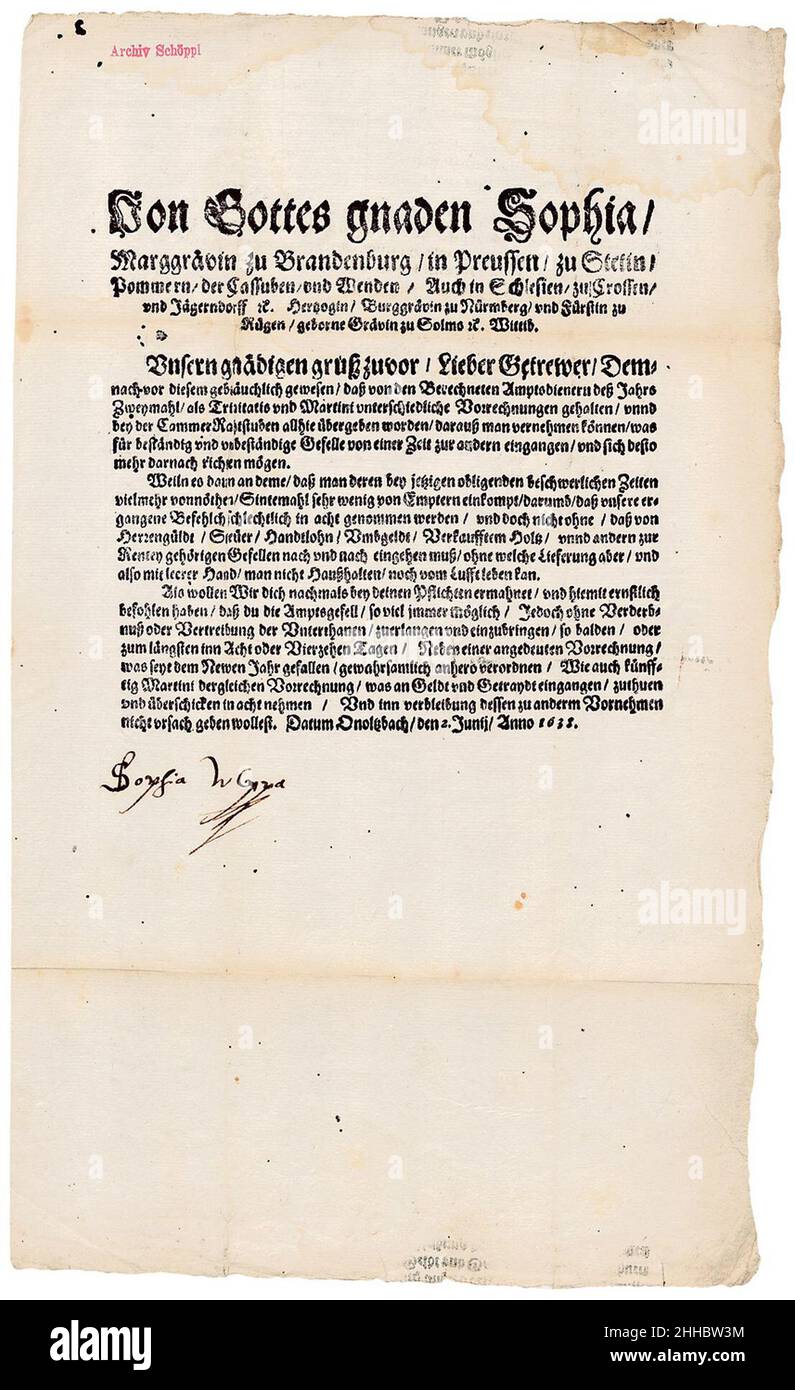 Archiv Schöppl
Von Gottes gnaden Sophia /
Marggrävin zu Brandenburg / in Preussen / zu Stetin /
Pommern / der Cassuben / vnd Wenden / Auch in Schlesien / zu Crossen /
vnd Jägerndorff ꝛc. Hertzogin / Burggrävin zu Nürmberg / vnd Fürstin zu
Rügen / geborne Grävin zu Solms ꝛc. Wittib.
Vnsern gnädigen grüß zuvor / Lieber Getrewer / Dem-
nach vor diesem gebräuchlich gewesen / daß von den Berechneten Amptsdienern deß Jahrs
Zweymahl / als Trinitatis vnd Martini vnterschiedliche Vorrechnungen gehalten / vnnd
bey der Cammer Rahtstuben allhie übergeben worden / darauß man vernehmen können / was
für beständig vnd vnbeständige Gefelle von einer Zeit zur andern eingangen / vnd sich desto
mehr darnach richten mögen.
Weiln es dann an deme / daß man deren bey jetzigen obligenden beschwerlichen Zeiten
vielmehr vonnöthen / Sintemahl sehr wenig von Emptern einkompt / darumb / daß vnsere er-
gangene Befehlch schlechtlich in acht genommen werden / vnd doch nicht ohne / daß von
Herrengüldt / Steuer / Handtlohn / Vmbgeldt / Verkaufftem Holtz / vnnd andern zur
Rentey gehörigen Gefellen nach vnd nach eingehen muß / ohne welche Lieferung aber / vnd
also mit leerer Hand / man nicht Haußhalten / noch vom Lufft leben kan.
Als wollen Wir dich nachmals bey deinen Pflichten ermahnet / vnd hiemit ernstlich
befohlen haben / daß du die Amptsgefell / so viel jmmer möglich / Jedoch ohne Verderb-
nuß oder Vertreibung der Vnterthanen / zuerlangen vnd einzubringen / so balden / oder
zum längsten inn Acht oder Vierzehen Tagen / Neben einer angedeuten Vorrechnung /
was seyt dem Newen Jahr gefallen / gewahrsamlich anhero verordnen / Wie auch künff-
tig Martini dergleichen Vorrechnung / was an Geldt vnd Getraydt eingangen / zuthuen
vnd überschicken in acht nehmen / Vnd inn verbleibung dessen zu anderm Vornehmen
nicht vrsach geben wollest. Datum Onoltzbach / den 2. Junij / Anno 1638.
Sophia
alamy
Image ID: 2HHBW3M
www.alamy.com